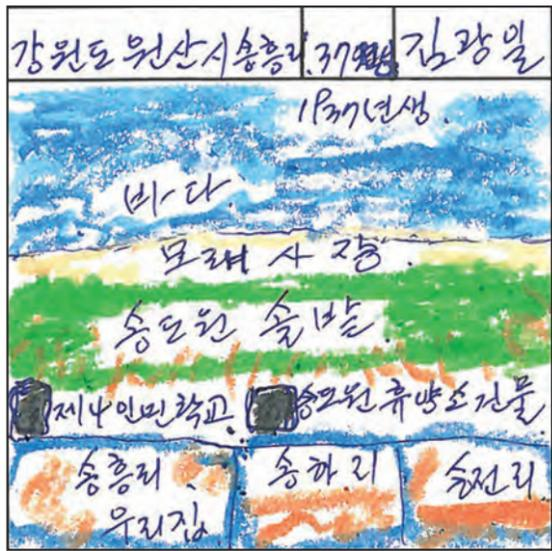 강원도 원산시 송흥리 37 김광일
1937년생.
바다
모래사장
송도원 솔밭
제4인민학교 송도원휴양소건물
송흥리 송하리 송전리
우리집